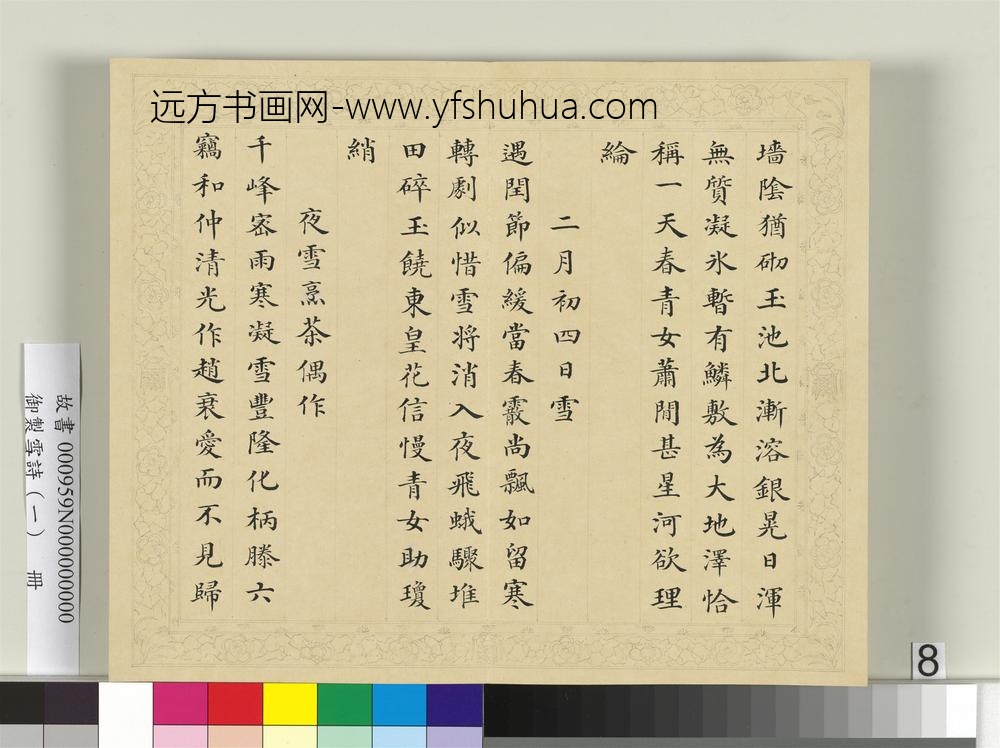 远方书画网-www.yfshuhua.com
墻陰猶砌玉池北漸溶銀晃日渾
無質凝氷暫有鱗敷為大地澤恰
稱一天春青女蕭閒甚星河欲理
綸
二月初四日雪
遇閏節偏緩當春霰尚飄如留寒
轉劇似惜雪将消入夜飛蛾驟堆
田碎玉饒東皇花信慢青女助瓊
綃
夜雪烹茶偶作
千峰宻雨寒凝雪豐隆化柄滕六
竊和仲清光作趙衰愛而不見歸
故書 000959N000000000
御製雪詩（一） 冊
8